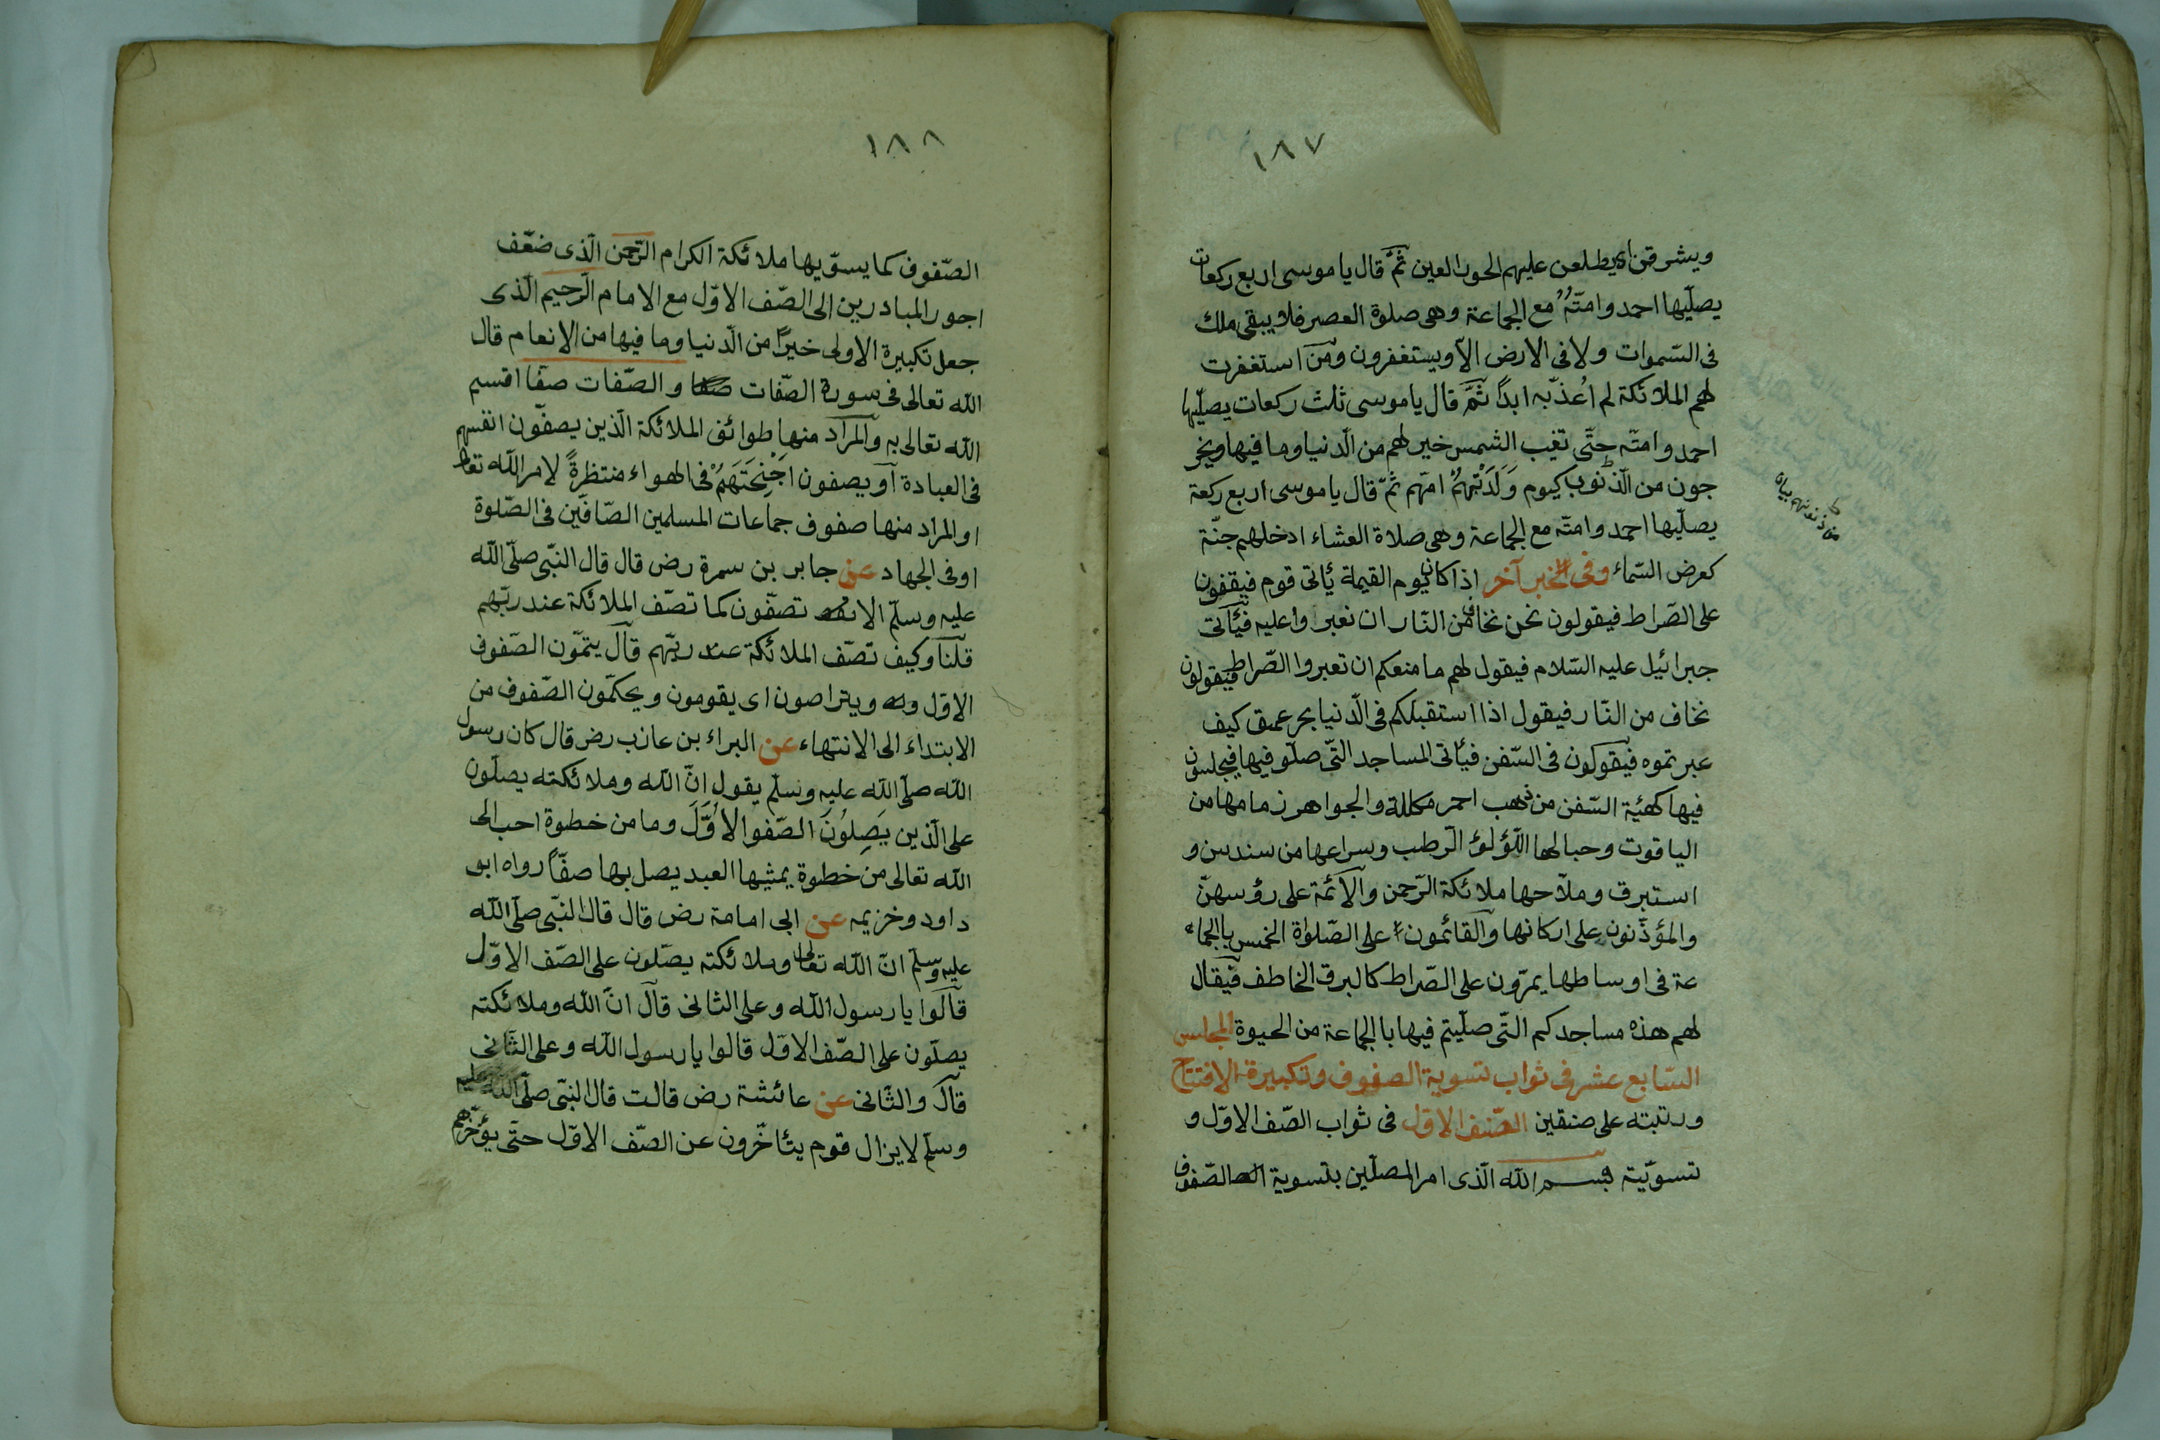 ١٨٧
ويشرقن اى يطلعن عليهم الحور العين ثمّ قال يا موسى اربع ركعات
يصلّيها احمد وامّته مع الجماعة وهى صلوة العصر فلا يبقى ملك
فى السّموات ولا فى الارض الّا ويستغفرون ومن استغفرت
لهم الملائكة لم اعذّبه ابدًا ثمّ قال يا موسى ثلث ركعات يصلّيها
احمد وامّته حتّى تغيب الشمس خير لهم من الّدنيا وما فيها ويخر
جون من الّذنوب كيوم وَلَدَتْهُمْ امّهم ثمّ قال يا موسى اربع ركعة
يصلّيها احمد وامّته مع الجماعة وهى صلاة العشاء ادخلهم جنّة
كعرض السّماء وفى الخبر آخر اذا كان يوم القيمة يأتى قوم فيقفون
على الصّراط فيقولون نحن نخاف من النّار ان نعبروا عليه فيأتى
جبرائيل عليه السّلام فيقول لهم ما منعكم ان تعبروا الصّراط فيقولون
نخاف من النّار فيقول اذا استقبلكم فى الّدنيا بحر عميق كيف
عبرتموه فيقولون فى السّفن فيأتى المساجد التّى صلّو فيها فيجلسون
فيها كهيئة السّفن من ذهب احمر مكللة والجواهر زمامها من
الياقوت وحبالها اللّؤلؤ الرّطب وسراعها من سندس و
استبرق وملّاحها ملائكة الرّحمن والآئمّة على رؤسهنّ
والمؤذّنون على اركانها والقائمون على الصّلوٰة الخمس بالجماء
عة فى اوساطها يمرّون على الصّراط كالبرق الخاطف فيقال
لهم هذه مساجدكم التّى صلّيتم فيها با الجماعة من الحيوة المجلس
السّابع عشر فى ثواب تسوية الصفوف وتكبيرة الافتتاح
ورتبته على صنقين الصّنف الاوّل فى ثواب الصّف الاوّل و
تسويّية بسم الله الّذى امر المصلّين بتسوية الصّفوف
١٨٨
الصّفوف كما يسوّيها ملائكة الكرام الرّحمن الّذى ضعّف
اجور المبادرين الى الصّف الاوّل مع الامام الّرحيم الّذى
جعل تكبيرة الاولى خيرًا من الّدنيا وما فيها من الانعام قال
الله تعالى فى سورة الصّفات والصّفات صفّا اقسم
الله تعالى به والمراد منها طوائف الملائكة الّذين يصفّون انفسهم
فى العبادة او يصفون اَجْنِحَتَهَمْ فى الهواء منتظرةً لامر الله تعالى
او المراد منها صفوف جماعات المسلمين الصّافّين فى الصّلوة
او فى الجهاد عن جابر بن سمرة رض قال قال النّبى صلّى الله
عليه وسلّم الا تصفّون كما تصّف الملائكة عند ربّهم
قلنا وكيف تصّف الملائكة عند ربّهم قال يتمّون الصّفوف
الاوّل ويتراصون اى يقومون ويحكمّون الصّفوف من
الابتداء الى الانتهاء عن البراء بن عازب رض قال كان رسول
الله صلّى الله عليه وسلّم يقول انّ الله وملائكته يصلّون
على الّذين يَصِلُونَ الصّفو الاُوَّلَ وما من خطوة احب الى
الله تعالى من خطوة يمشيها العبد يصل بها صفّاً رواه ابو
داود وخزيمه عن ابى امامة رض قال قال النّبى صلّى الله
عليه وسلّم انّ الله تعالى وملائكته يصّلون على الصّف الاوّل
قالوا يا رسول الله وعلى الثانى قال انّ الله وملائكته
يصلّون على الصّف الاوّل قالوا يا رسول الله وعلى الثّانى
قال والثّانى عن عائشة رض قالت قال النّبى صلّى الله عليه
وسلّم لا يزال قوم يتأخّرون عن الصّف الاوّل حتّى يؤخّرهم